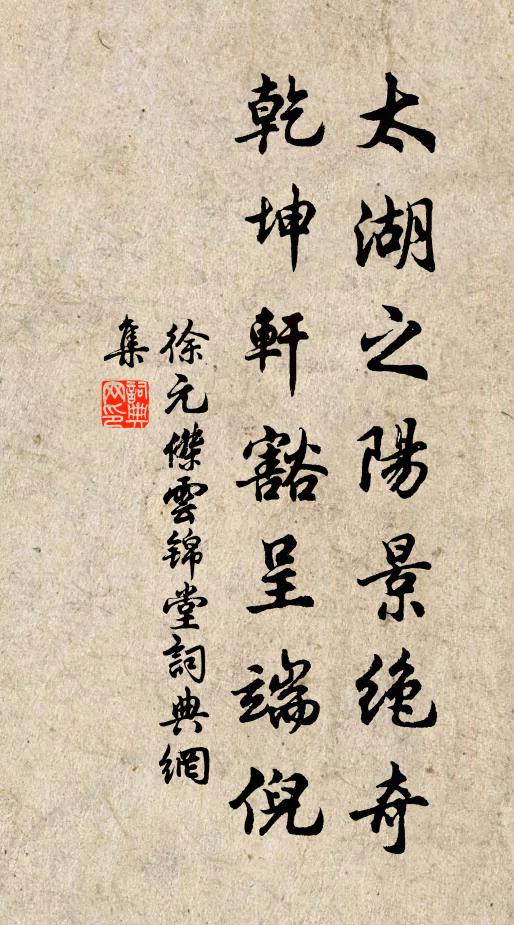 太湖之陽景絶奇
乾坤軒豁呈端倪
徐元傑雲锦堂詞典網
集
詞典
网印